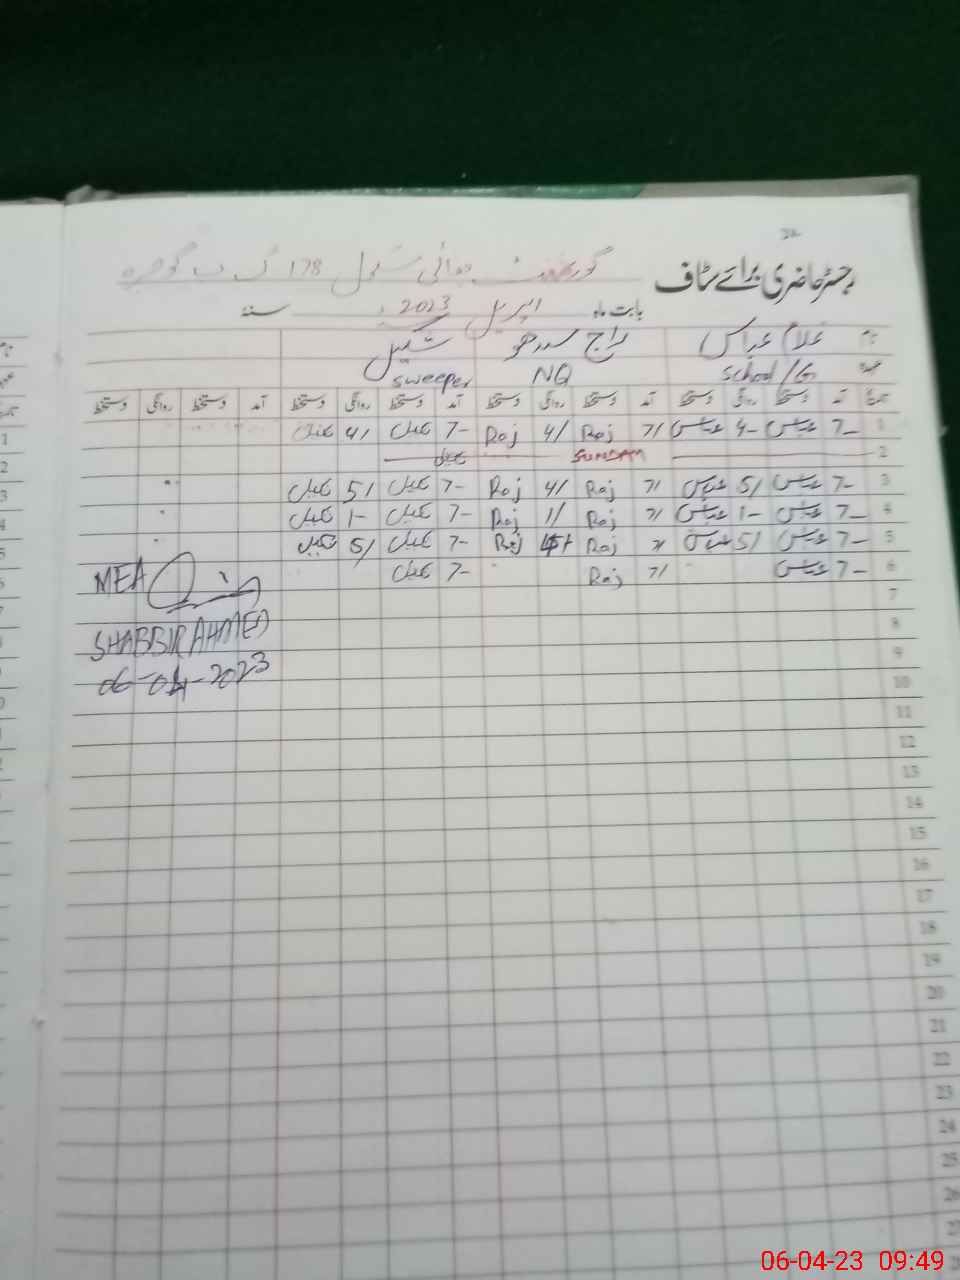 رجسٹر حاضری برائے سٹاف گورنمنٹ ہائی سکول 178 گ ب گوجرہ
بابت ماہ اپریل 2023 سنہ
نام غلام عباس راج سدھو شکیل
عہدہ School/G NQ sweeper
تاریخ آمد دستخط روانگی دستخط آمد دستخط روانگی دستخط آمد دستخط روانگی دستخط آمد دستخط روانگی دستخط
1 7- عباس 4- عباس 7/ Raj 4/ Raj 7- شکیل 4/ شکیل
2 SUNDAY
3 7- عباس 5/ عباس 7/ Raj 4/ Raj 7- شکیل 5/ شکیل
4 7- عباس 1- عباس 7/ Raj 1/ Raj 7- شکیل 1- شکیل
5 7- عباس 5/ عباس Raj Raj 7- شکیل 5/ شکیل
6 7- عباس 7/ Raj 7- شکیل
MEA
7
8
SHABBIR AHMED
9
06-04-2023
10
11
12
13
14
15
16
17
18
19
20
21
22
23
24
25
26
27
06-04-23 09:49